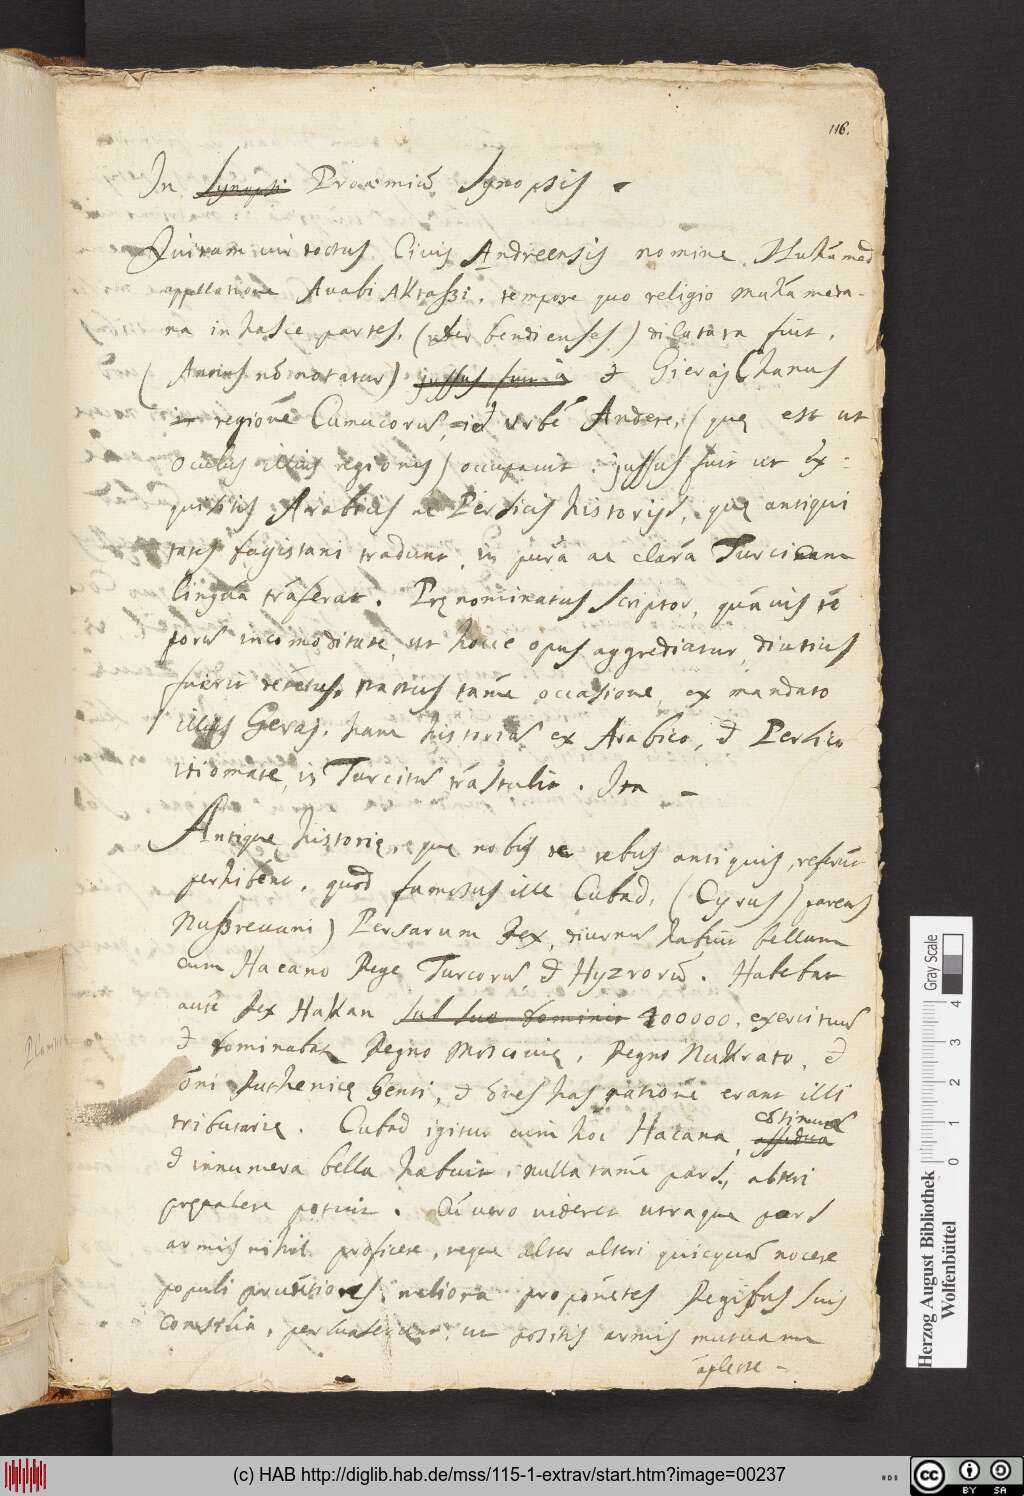 116.
In Synopsi Proœmiū Synopsis
Quidam vir doctus Civis Andreensis nomine Muhāmed
appellatione Avabi Aktaßi, tempore quo religio Muhāmeda-
na in hasce partes, (Derbendienses) dilatata fuit,
(Annus nō notatur) jussus fuit à & Gieraj Chanus
in regionē Cumucorū, id urbē Andere, (quę est ut
oculus illius regionis) occupavit, jussus fuit ut ex-
quisitis Arabicis ac Persicis historijs, quę antiqui
tates Dagistani tradunt, in purā ac clarā Turcicam
linguā trāsferat. Pręnominatus Scriptor, quāvis tē
porū incomoditate, ut hocce opus aggrediatur, diutius
fuerit detētus, nactus tamē occasione, ex mandato
illius Geraj, hanc historiā ex Arabico, & Persico
idiomate, in Turcicū trāstulit. Ita
Antiquę historię, quę nobis de rebus antiquis, referūt
perhibent, quod famosus ille Cubad, (Cyrus) parens
Nußrevani) Persarum Rex, diurnū habuit bellum
cum Hacano Rege Turcorū, & Hyzrorū. Habebat
autē Rex Hakan sub suo dominio 400000. exercitum
& dominabat Regno Moscovię, Regno Nukrato, &
ōni Ruthenicę Genti, & ōnes has ratione erant illi
tributarię. Cubad igitur cum hoc Hacana, cōtinua
assidua
& innumera bella habuit, nulla tamē pars, alteri
pręvalere potuit. Cū vero videret utraque pars
armis nihil proficere, neque alter alteri quicquā nocere
populi prudētiores, meliora proponētes Regibus suis
Consilia, persuaserunt, ut positis armis mutuam
Herzog August Bibliothek
Wolfenbüttel
0 1 2 3 4
Gray Scale
(c) HAB http://diglib.hab.de/mss/115-1-extrav/start.htm?image=00237
cc BY SA